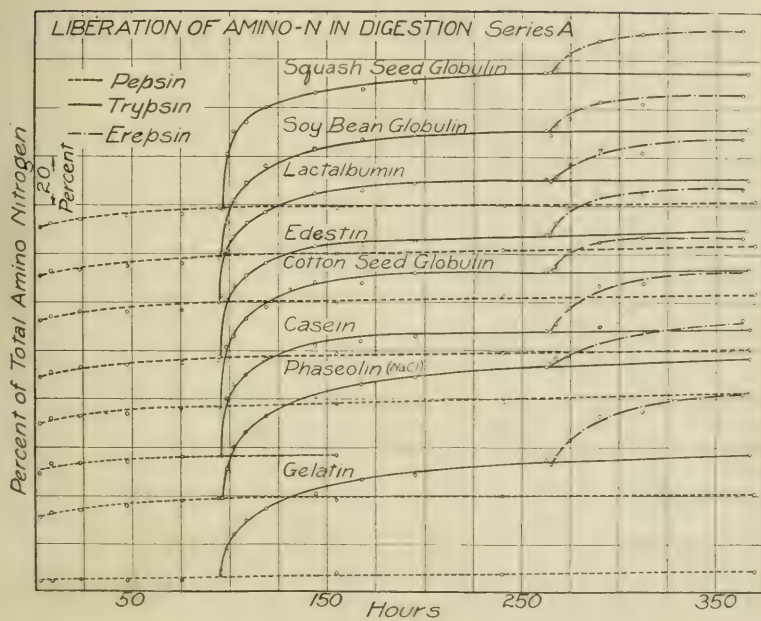 LIBERATION OF AMINO-N IN DIGESTION Series A
Pepsin
Trypsin
Erepsin
Squash Seed Globulin
Soy Bean Globulin
Lactalbumin
Edestin
Cotton Seed Globulin
Casein
Phaseolin (NaCl)
Gelatin
20
Percent
Percent of Total Amino Nitrogen
50
150
250
350
Hours